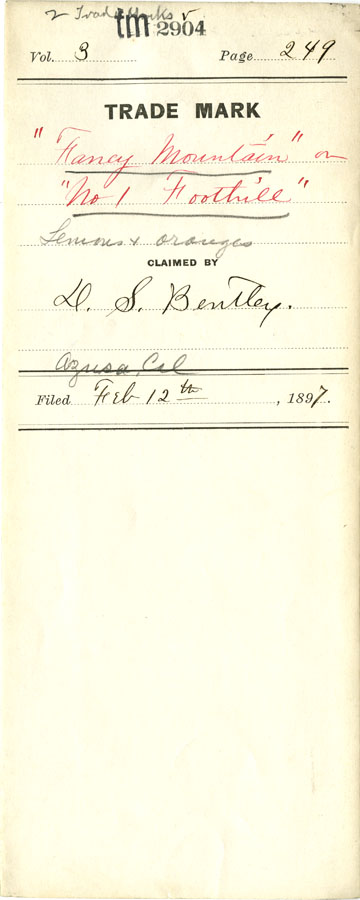 2 Trade Marks v
tm 2904
Vol. 3 Page 249
TRADE MARK
"Fancy Mountain" or
"No 1 Foothill"
Lemons & oranges
CLAIMED BY
D. S. Bentley.
Azusa, Cal
Filed Feb 12th, 1897.